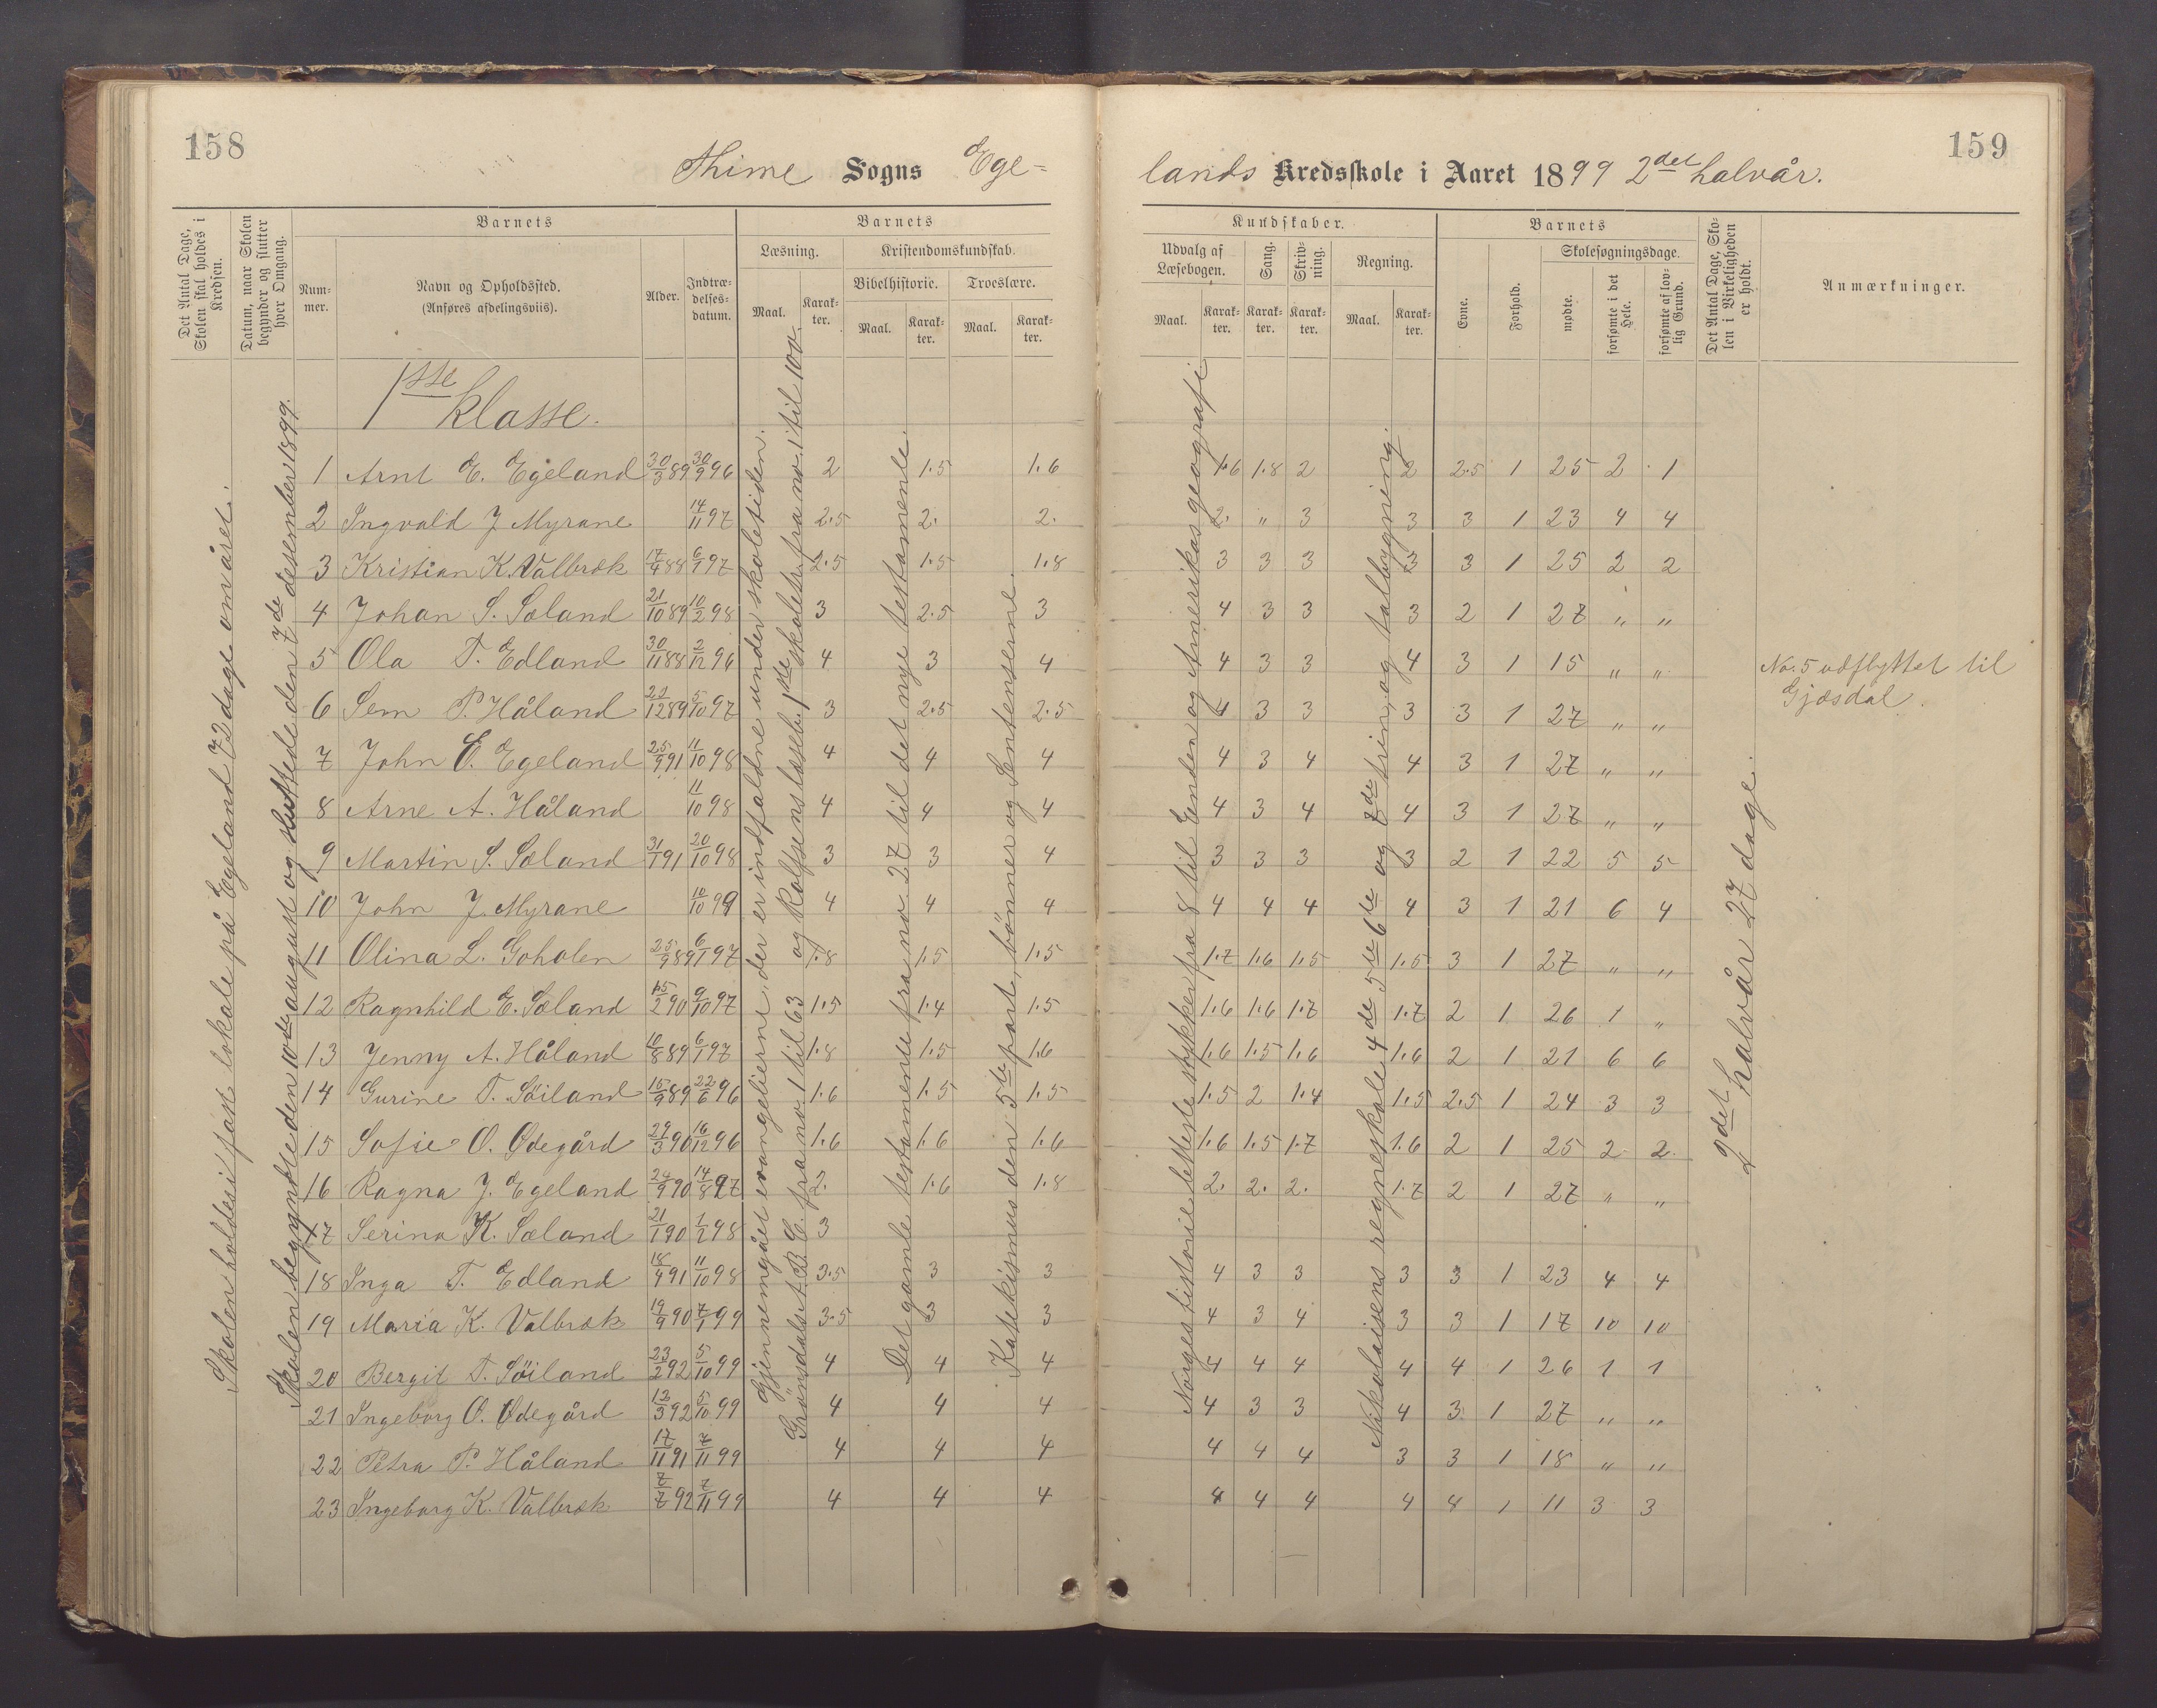 158
Thime Sogns Ege-
lands Kredsskole i Aaret 1899 2det halvår.
159
Det Antal Dage, Skolen skal holdes i Kredsen.
Datum, naar Skolen begynder og slutter hver Omgang.
Barnets
Num-mer.
Navn og Opholdssted. (Anføres afdelingsviis).
Alder.
Indtræ-delses-datum.
Barnets
Læsning.
Maal.
Karak-ter.
Kristendomskundskab.
Bibelhistorie.
Maal.
Karak-ter.
Troeslære.
Maal.
Karak-ter.
Kundskaber.
Udvalg af Læsebogen.
Maal.
Karak-ter.
Sang.
Karak-ter.
Skriv-ning.
Karak-ter.
Regning.
Maal.
Karak-ter.
Barnets
Evne.
Forhold.
Skolesøgningsdage.
mødte.
forsømte i det Hele.
forsømte af lov-lig Grund.
Det Antal Dage, Sko-len i Virkeligheden er holdt.
Anmærkninger.
Skolen holdes i fast lokale på Egeland 72 dage om året.
Skolen begyndte den 10de august og sluttede den 7de desember 1899.
Gjennemgået evangelierne, der er indfaldne under skoletiden.
Grøndals A B C. fra no 1 til 63 og Rolfsens læsebog 1ste skolestr. fra no. 1 til 100.
Det gamle testamente fra no 27 til det nye testamente.
Katekismus den 5te part, bønner og Sentenserne.
Norges historie letteste stykker fra 8 til Enden og Amerikas geografi
Nikolaisens regneskole 4de 5te 6te og 7de trin, og talbygning.
2det halvår 27 dage.
1ste klasse.
1 Arnt E. Egeland 30/3 89 30/9 96 2 1.5 1.6 1.6 1.8 2 2 2.5 1 25 2 1
2 Ingvald J Myrane 14/11 97 2.5 2. 2. 2. " 3 3 3 1 23 4 4
3 Kristian K. Valbræk 17/4 88 6/1 97 2.5 1.5 1.8 3 3 3 3 3 1 25 2 2
4 Johan S. Sæland 21/10 89 10/2 98 3 2.5 3 4 3 3 3 2 1 27 " "
5 Ola T. Edland 30/11 88 2/12 96 4 3 4 4 3 3 4 3 1 15 " " No. 5 udflyttet til
Gjæsdal.
6 Sem P. Håland 22/12 89 5/10 97 3 2.5 2.5 4 3 3 3 3 1 27 " "
7 John E. Egeland 25/9 91 11/10 98 4 4 4 4 3 4 4 3 1 27 " "
8 Arne A. Håland 11/10 98 4 4 4 4 3 4 4 3 1 27 " "
9 Martin S. Sæland 31/1 91 20/10 98 3 3 4 3 3 3 3 2 1 22 5 5
10 John J. Myrane 10/10 99 4 4 4 4 4 4 4 3 1 21 6 4
11 Olina L. Goholen 25/9 89 6/1 97 1.8 1.5 1.5 1.7 1.6 1.5 1.5 3 1 27 " "
12 Ragnhild E. Sæland 15/2 90 9/10 97 1.5 1.4 1.5 1.6 1.6 1.7 1.7 2 1 26 1 "
13 Jenny A. Håland 10/8 89 6/1 97 1.8 1.5 1.6 1.6 1.5 1.6 1.6 2 1 21 6 6
14 Gurine T. Söiland 15/9 89 22/6 96 1.6 1.5 1.5 1.5 2 1.4 1.5 2.5 1 24 3 3
15 Sofie O. Ødegård 29/3 90 16/12 96 1.6 1.6 1.6 1.6 1.5 1.7 1.6 2 1 25 2 2
16 Ragna J. Egeland 24/9 90 14/8 97 2. 1.6 1.8 2. 2. 2. 1.7 2 1 27 " "
17 Serina K. Sæland 21/1 90 1/2 98 3
18 Inga T. Edland 18/4 91 11/10 98 3.5 3 3 4 3 3 3 3 1 23 4 4
19 Maria K. Valbræk 19/9 90 7/1 99 3.5 3 3 4 3 4 3 3 1 17 10 10
20 Bergit T. Söiland 23/2 92 5/10 99 4 4 4 4 4 4 4 4 1 26 1 1
21 Ingeborg O. Ødegård 12/3 92 5/10 99 4 4 4 4 3 3 4 3 1 27 " "
22 Petra P. Håland 17/11 91 7/11 99 4 4 4 4 4 4 3 3 1 18 " "
23 Ingeborg K. Valbræk 7/7 92 7/11 99 4 4 4 4 4 4 4 4 1 11 3 3